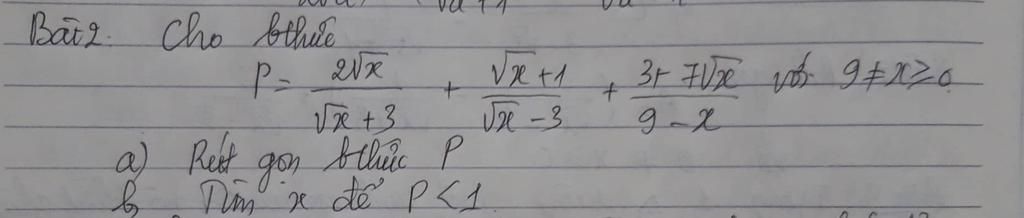 Bài 2. Cho bthức
P = 2√x / (√x + 3) + (√x + 1) / (√x - 3) + (3 + 7√x) / (9 - x) với 9 ≠ x ≥ 0
a) Rút gọn bthức P
b, Tìm x để P < 1